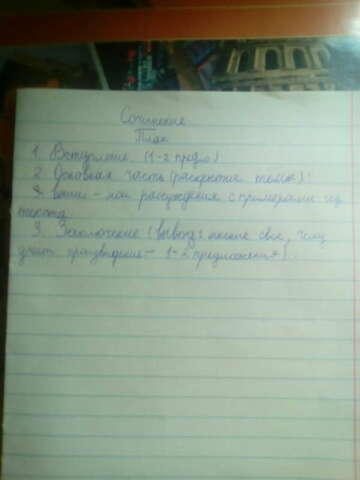 Сочинение
План
1. Вступление (1-2 предл)
2. Основная часть (раскрытие темы):
ваши - мои рассуждения с примерами из
текста
3. Заключение (вывод: мнение свое, чему
учит произведение - 1-2 предложения).